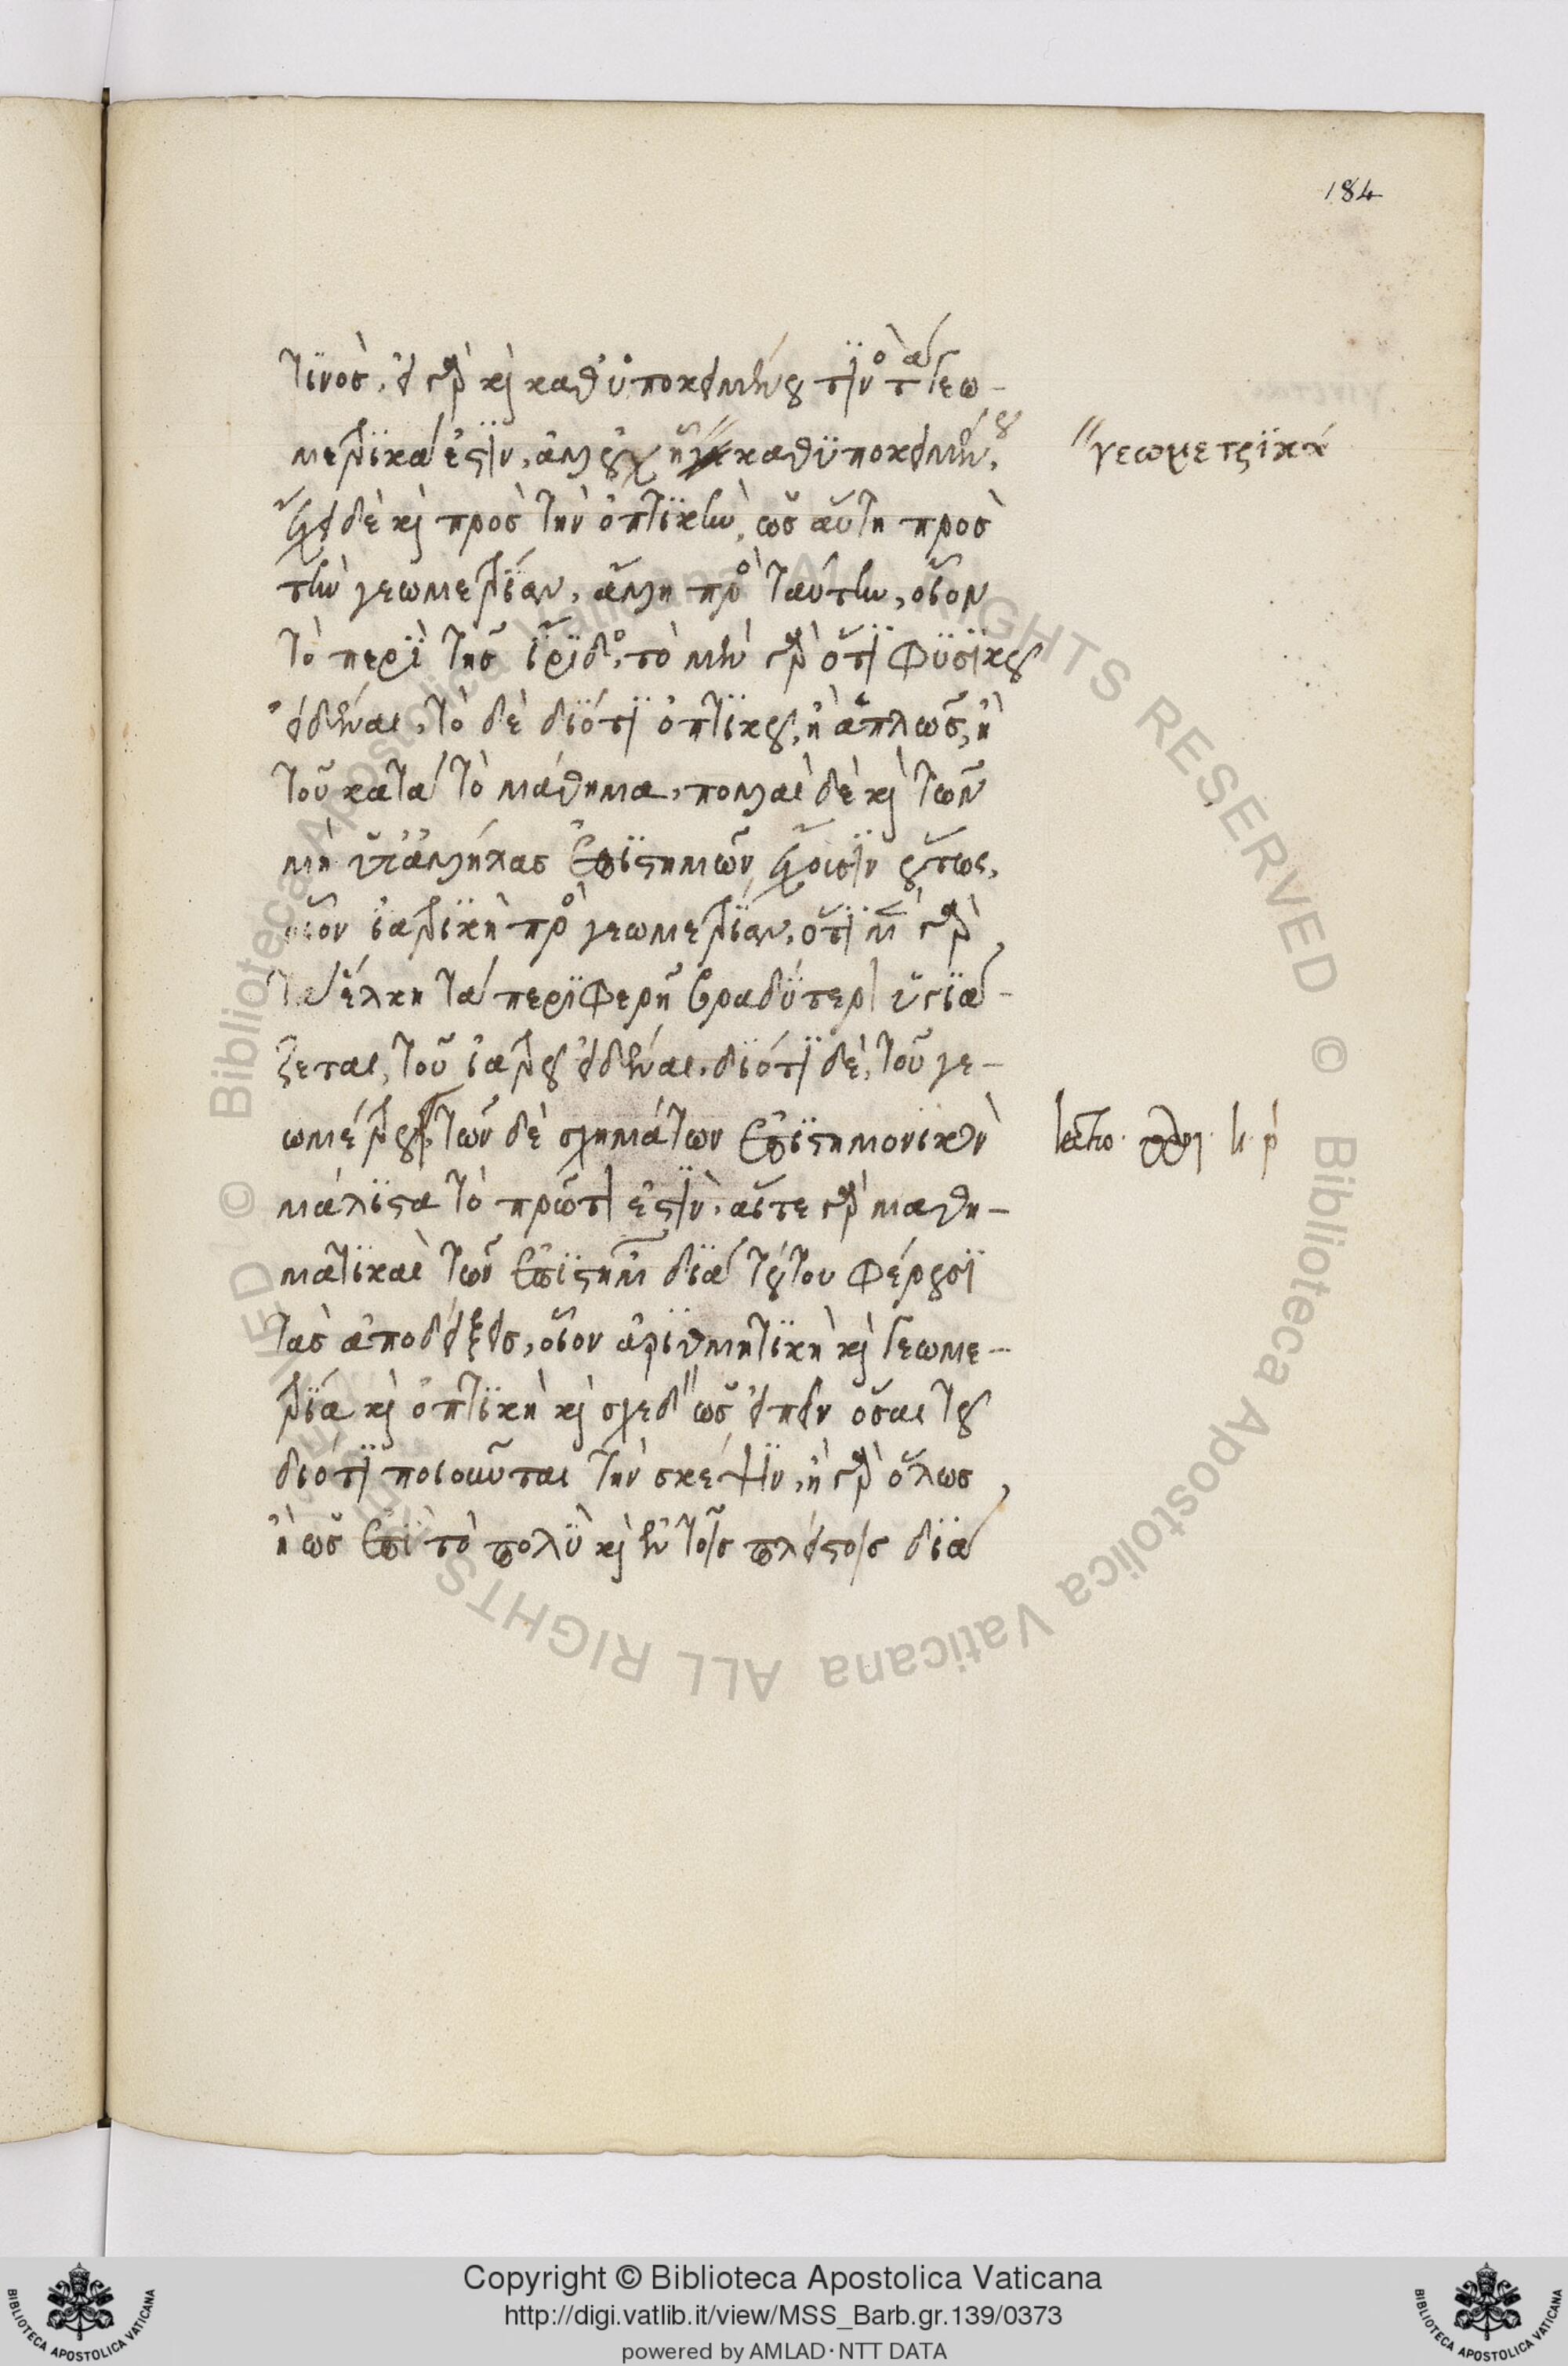 184
τινὸς. εἰ γὰρ καὶ καθ' ὑποκειμένου τινὸς τὰ γεω-
μετρικά ἐστιν, ἀλλ' οὐχ ᾗ γε καθ' ὑποκειμένου,
γεωμετρικά
ἔχει δὲ καὶ πρὸς τὴν ὀπτικὴν, ὡς αὕτη πρὸς
τὴν γεωμετρίαν, ἄλλη πρὸς ταύτην, οἷον
τὸ περὶ τῆς ἴριδος, τὸ μὲν γὰρ ὅτι φυσικοῦ
εἰδέναι, τὸ δὲ διότι ὀπτικοῦ, ἢ ἁπλῶς, ἢ
τοῦ κατὰ τὸ μάθημα, πολλαὶ δὲ καὶ τῶν
μὴ ὑπ' ἀλλήλας ἐπιστημῶν ἔχουσιν οὕτως,
οἷον ἰατρικὴ πρὸς γεωμετρίαν, ὅτι μὲν γὰρ
τὰ ἕλκη τὰ περιφερῆ βραδύτερον ὑγιά-
ζεται, τοῦ ἰατροῦ εἰδέναι, διότι δὲ, τοῦ γε-
ωμέτρου, τῶν δὲ σχημάτων ἐπιστημονικὸν
μάλιστα τὸ πρῶτον ἐστὶν. αἵτε γὰρ μαθη-
ματικαὶ τῶν ἐπιστημῶν διὰ τούτου φέρουσι
τὰς ἀποδείξεις, οἷον ἀριθμητικὴ καὶ γεωμε-
τρία καὶ ὀπτικὴ καὶ σχεδὸν ὡς εἰπεῖν ὅσαι τοῦ
διότι ποιοῦνται τὴν σκέψιν, ἢ γὰρ ὅλως,
ἢ ὡς ἐπὶ τὸ πολὺ καὶ ἐν τοῖς πλείστοις διὰ
Copyright © Biblioteca Apostolica Vaticana
http://digi.vatlib.it/view/MSS_Barb.gr.139/0373
powered by AMLAD·NTT DATA